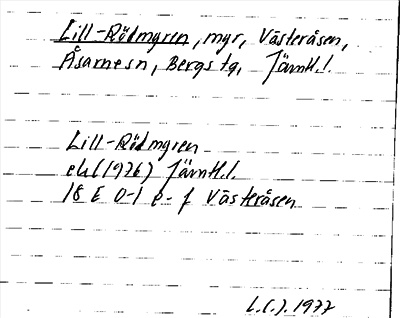 Lill-Rödmyren, myr, Västeråsen,
Åsarne sn, Bergs tg, Jämtl. l.
Lill-Rödmyren
ek (1976) Jämtl. l.
18 E 0-1 e-f Västeråsen
1977